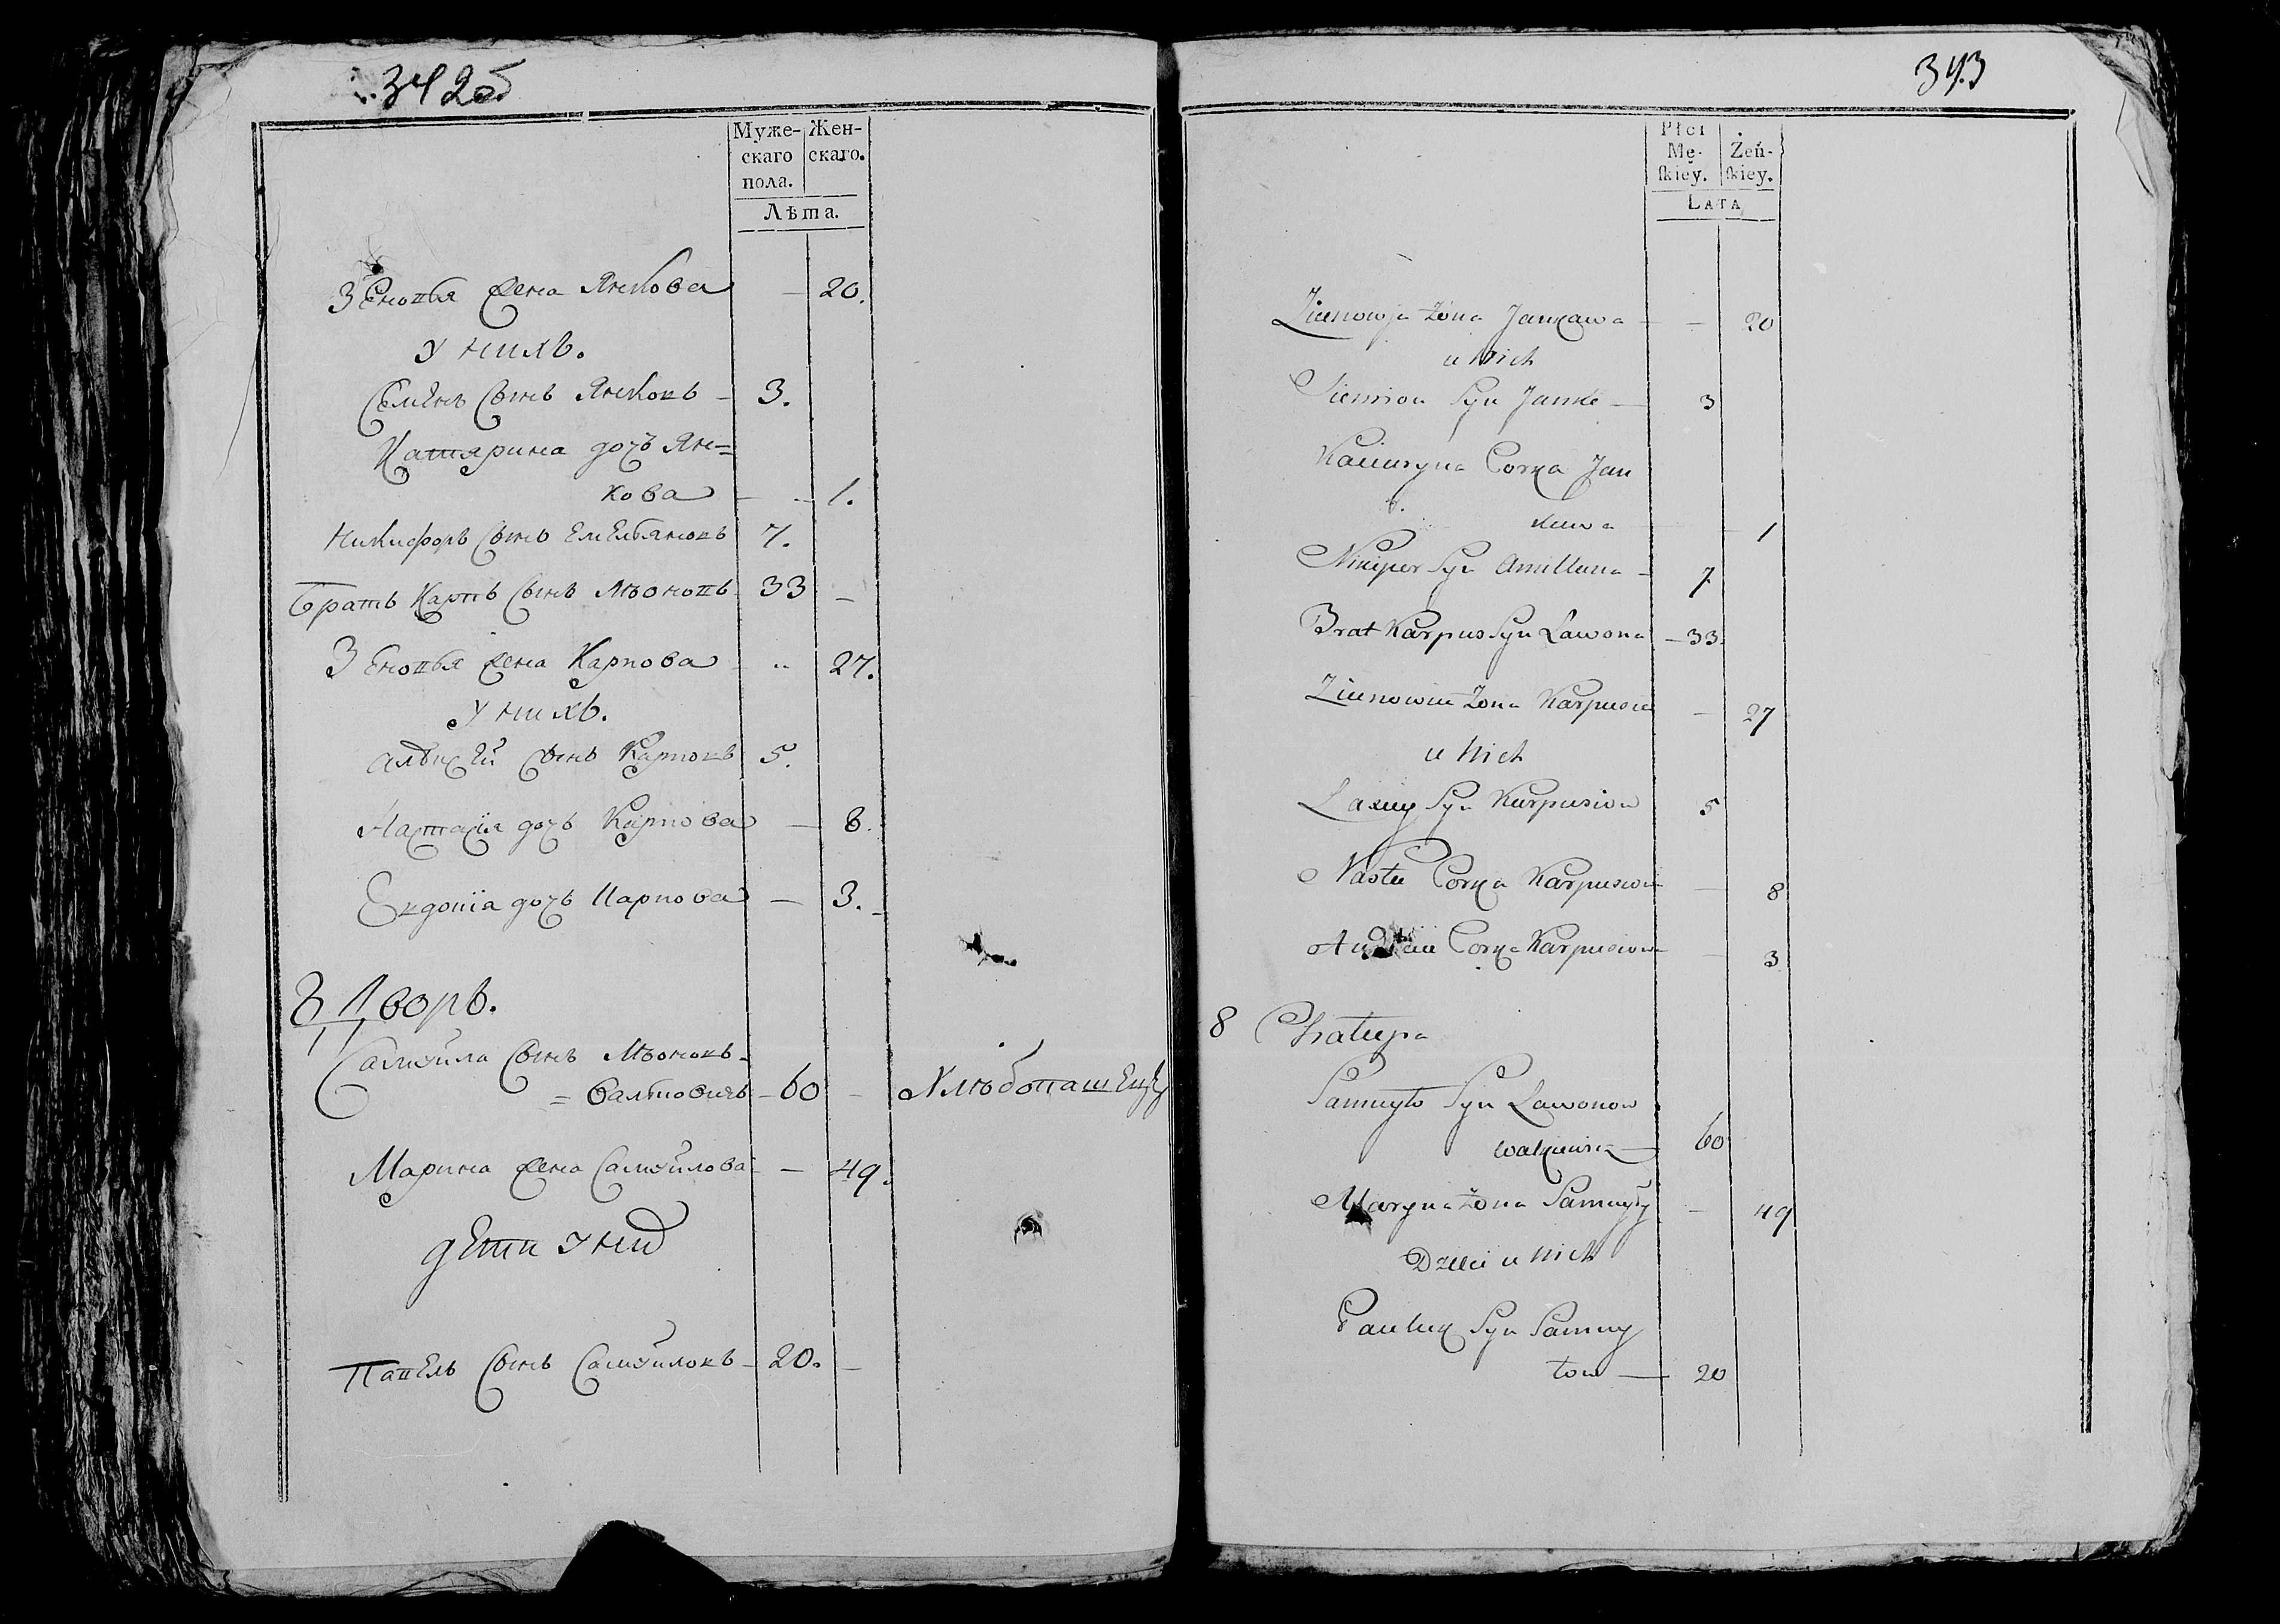 342об
Муже- Жен-
скаго скаго.
пола.
Лѣта.
Зеновья жена Янкова — 20.
У нихъ.
Семенъ сынъ Янковъ — 3.
Катярина дочь Ян=
кова — 1.
Никифоръ сынъ Емельяновъ 7.
Братъ Карпъ сынъ Лвоновъ 33 —
Зеновья жена Карпова 27.
У нихъ.
Алексей сынъ Карповъ 5.
Настасiя дочь Карпова — 8.
Евдокiя дочь Карпова — 3.
8 Дворъ.
Самуйла сынъ Лвоновъ
= — 60 —
Марина жена Самуйлова — 49.
дети у них
Павелъ сынъ Самуйловъ — 20. —
343
Płci
Mę- Żeń-
ſkiey. ſkiey.
LATA
Zienowja żona Jankowa — 20
u Nich
Siemion Syn Janko — 3
Kateryna Corka Jan
kowa 1
Nikiper Syn Amillana — 7
Brat Karpus Syn Lawona — 33.
Zienowia żona Karpusia — 27
u Nich
Laxiey Syn Karpusiow 5
Nasta Corka Karpusiowa — 8
Corka Karpusiowa 3
8 Chałupa
Samuyło Syn Lawonow
— 60
Maryna żona Samuyły — 49
Dzieci u Nich
Pauluk Syn Samuy
łow — 20